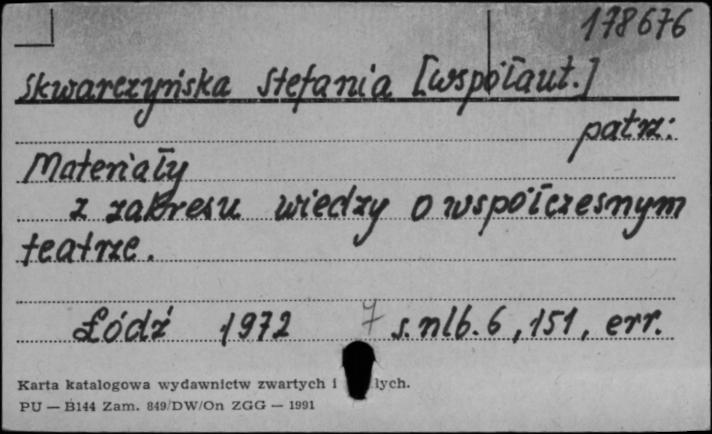 178676
Skwarczyńska Stefania [współaut.]
patrz:
Materiały
z zakresu wiedzy o współczesnym
teatrze.
Łódź 1972 7 s. nlb. 6, 151, err.
Karta katalogowa wydawnictw zwartych i lych.
PU — B144 Zam. 849/DW/On ZGG — 1991